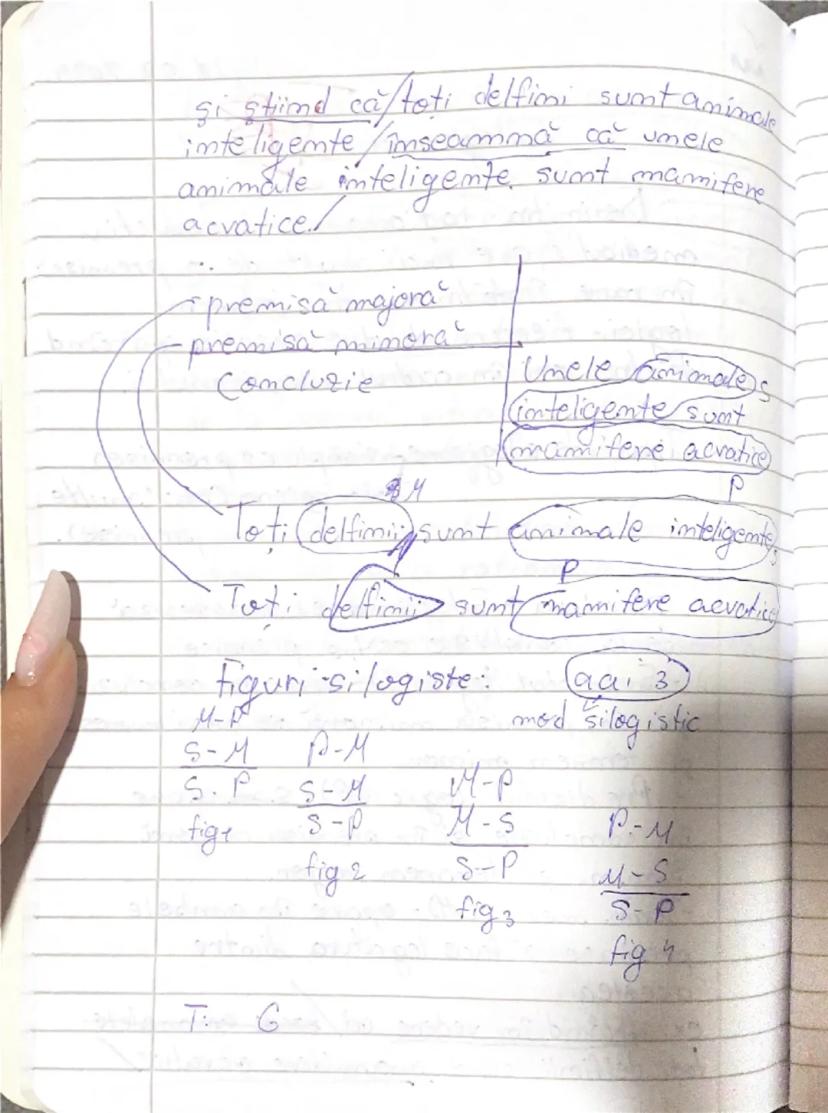 și știind că/toți delfimi sunt animale
inteligente/înseamnă că unele
animale inteligente sunt mamifere
acvatice./
premisă majoră
premisă minoră
Concluzie
Unele animale S
inteligente sunt
mamifere acvatice
P
M
Toți delfinii sunt animale inteligente S
M P
Toți delfinii sunt mamifere acvatice
Figuri silogiste: aai 3
mod silogistic
M-P
S-M
S-P
fig 1
P-M
S-M
S-P
fig 2
M-P
M-S
S-P
fig 3
P-M
M-S
S-P
fig 4
T: 6